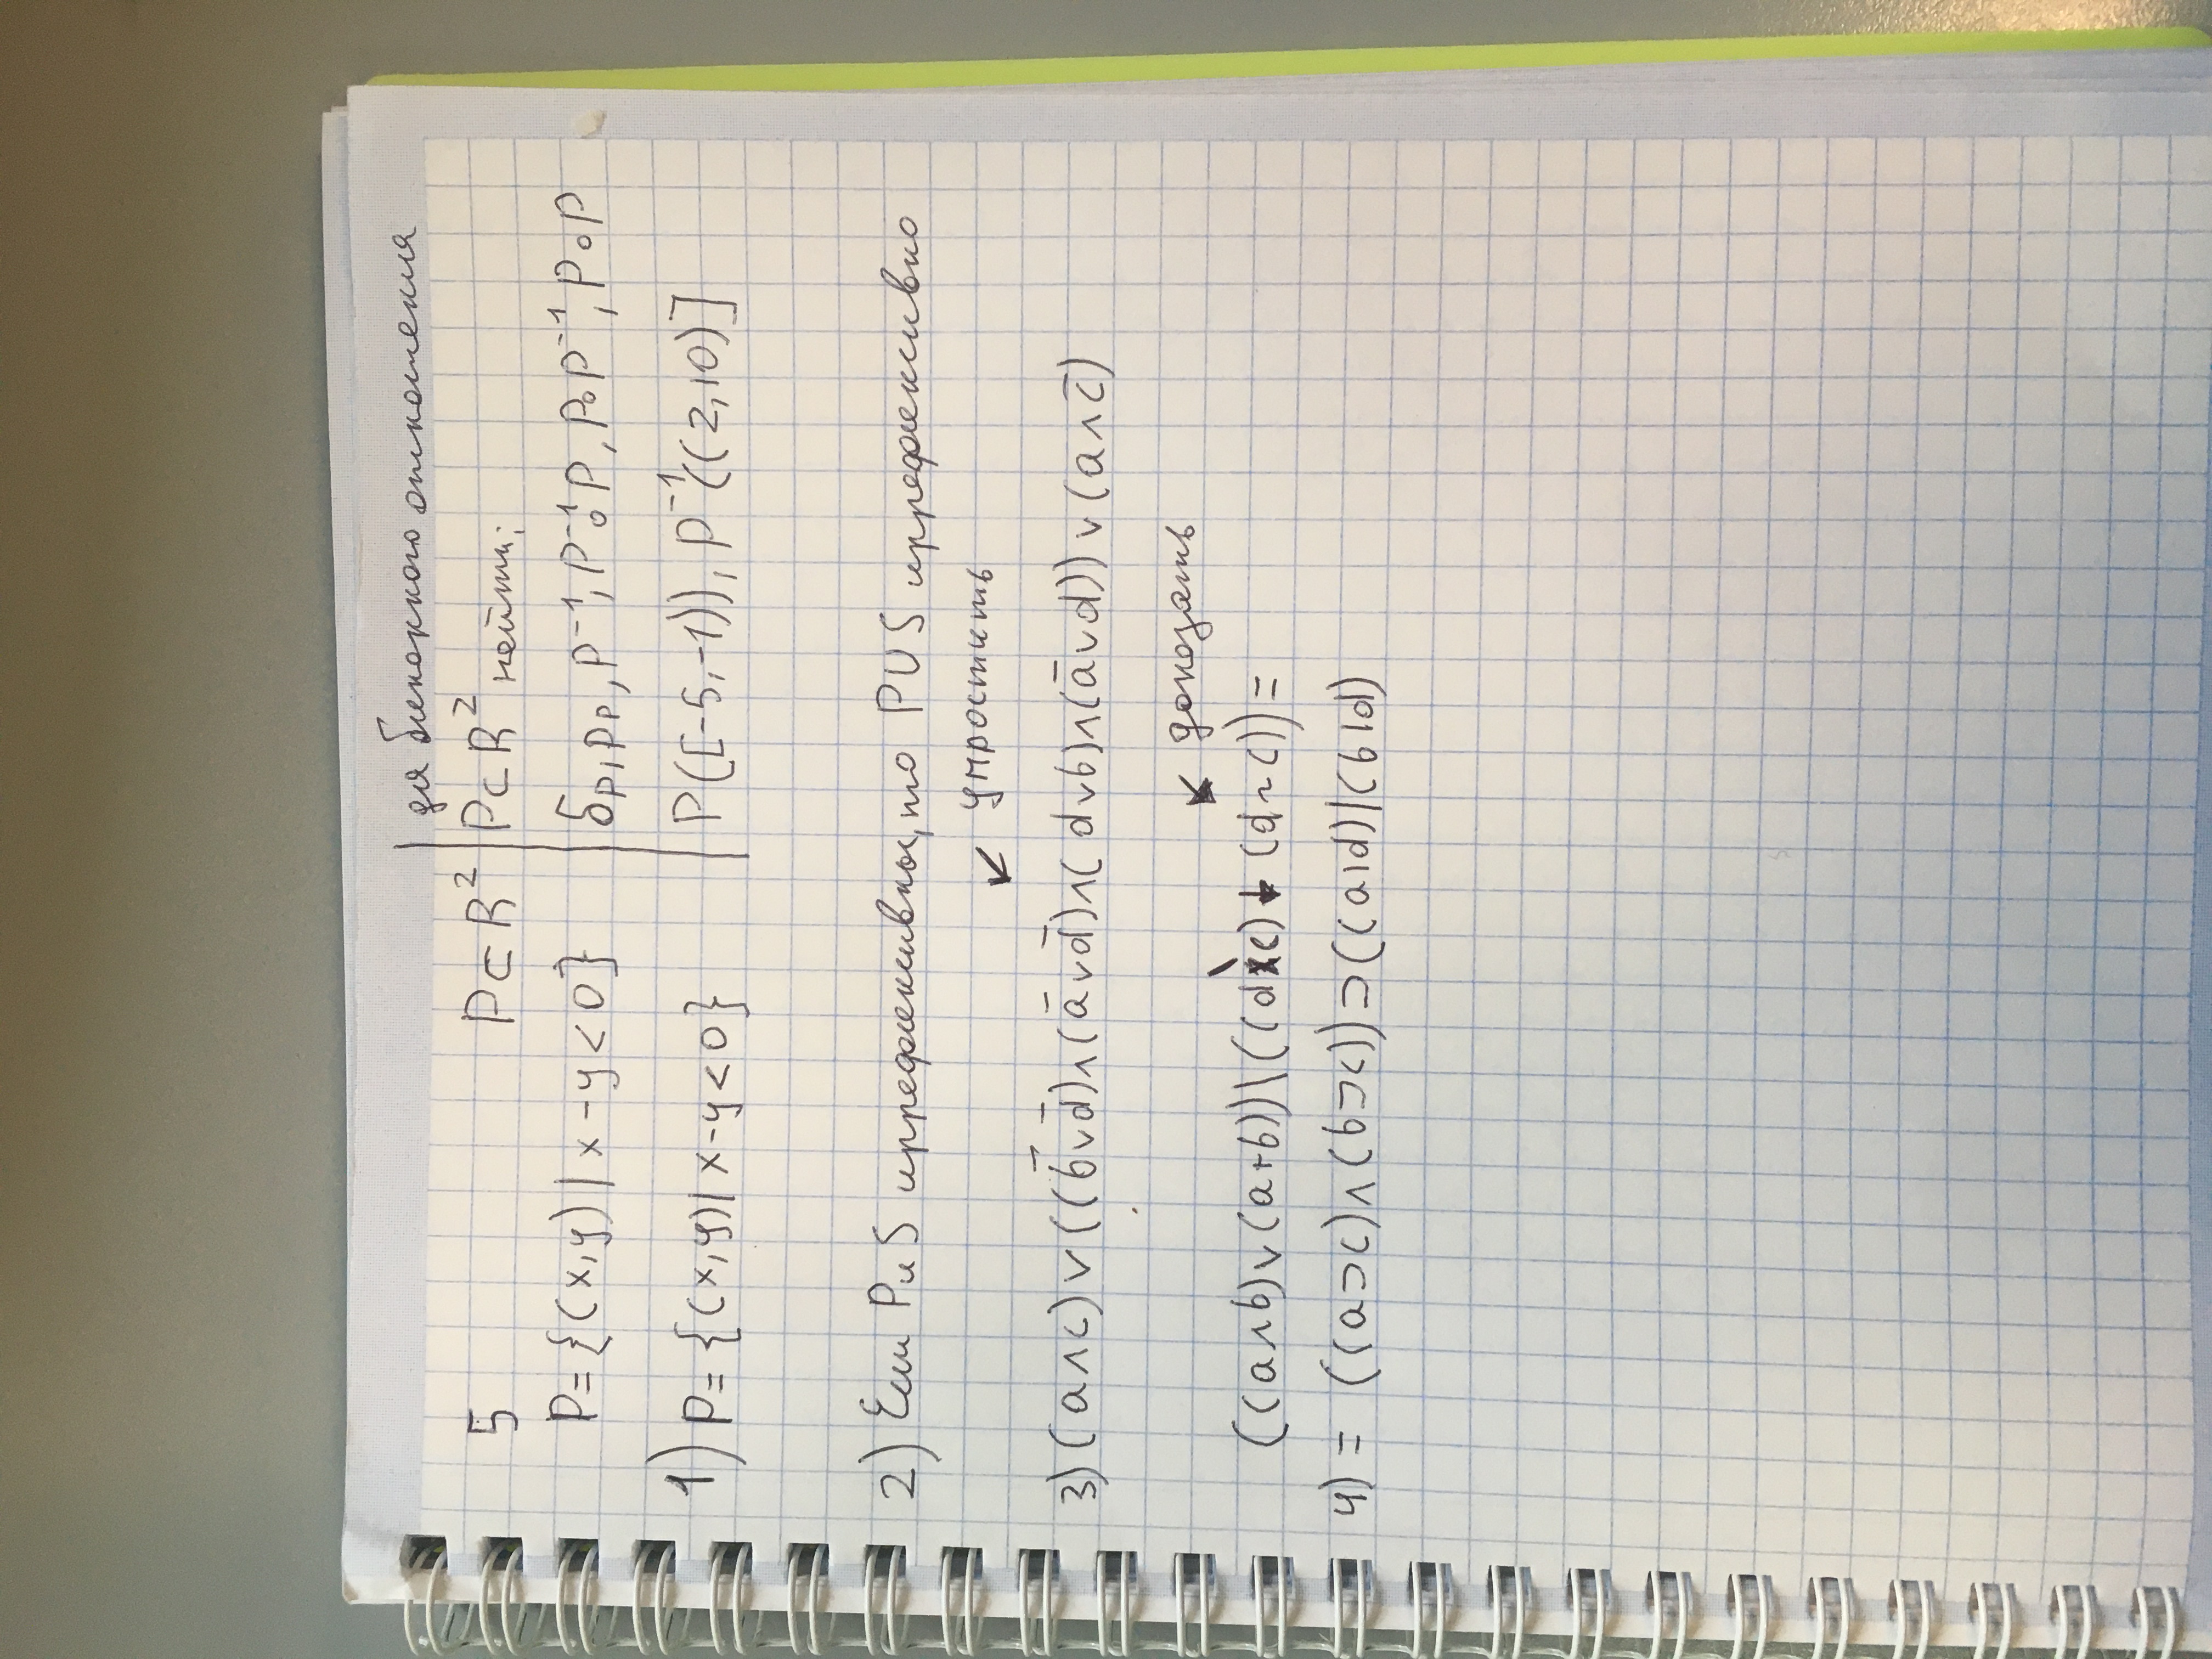 для бинарного отношения
5 P⊂R² | P⊂R² найти:
P={(x,y)|x-y<0} | δp, ρp, P⁻¹, P⁻¹∘P, P∘P⁻¹, P∘P
1) P={(x,y)|x-y<0} | P([-5,-1)), P⁻¹((2,10)]
2) Если P и S иррефлексивны, то P∪S иррефлексивно
↙ упростить
3) (a∧c)∨((b̄∨d̄)∧(ā∨d̄)∧(d∨b)∧(ā∨d))∨(a∧c̄)
↙ доказать
((a∧b)∨(a+b))\((d\c)↓(d~c))=
4) = ((a⊃c)∧(b⊃c))⊃((a|d)|(b|d)